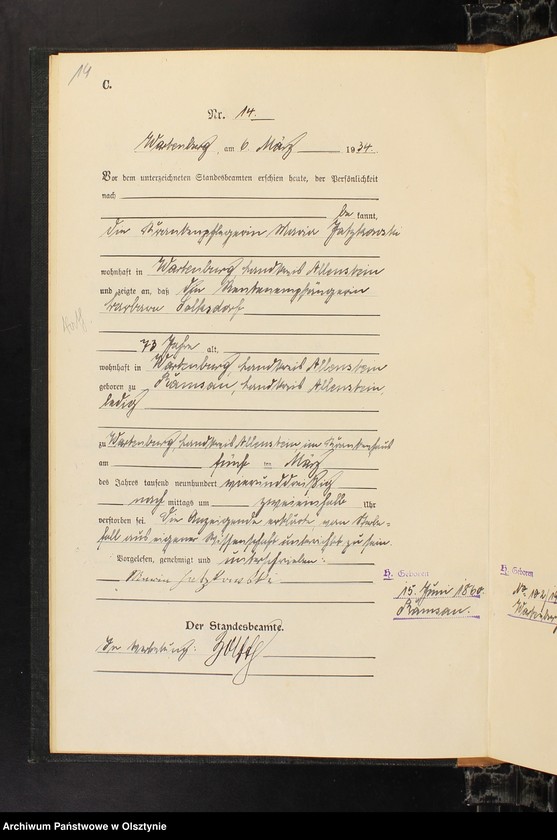 14
C.
Nr. 14.
Wartenburg, am 6. März 1934.
Vor dem unterzeichneten Standesbeamten erschien heute, der Persönlichkeit
nach
be kannt,
die Krankenpflegerin Maria
wohnhaft in Wartenburg, Landkreis Allenstein
und zeigte an, daß die Rentenempfängerin
Barbara
73 Jahre alt,
wohnhaft in Wartenburg, Landkreis Allenstein
geboren zu Ramsau, Landkreis Allenstein,
ledig
zu Wartenburg, Landkreis Allenstein im Krankenhaus
am fünf im März
des Jahres tausend neunhundert vierunddreißig
nach mittags um zweieinhalb Uhr
verstorben sei. Die Anzeigende erklärte, vom Sterbe-
fall aus eigener Wissenschaft unterrichtet zu sein.
Vorgelesen, genehmigt und unterschrieben:
Maria
Der Standesbeamte.
In Vertretung:
H. Geboren
15. Juni 1860.
Ramsau.
H. Geboren
Archiwum Państwowe w Olsztynie